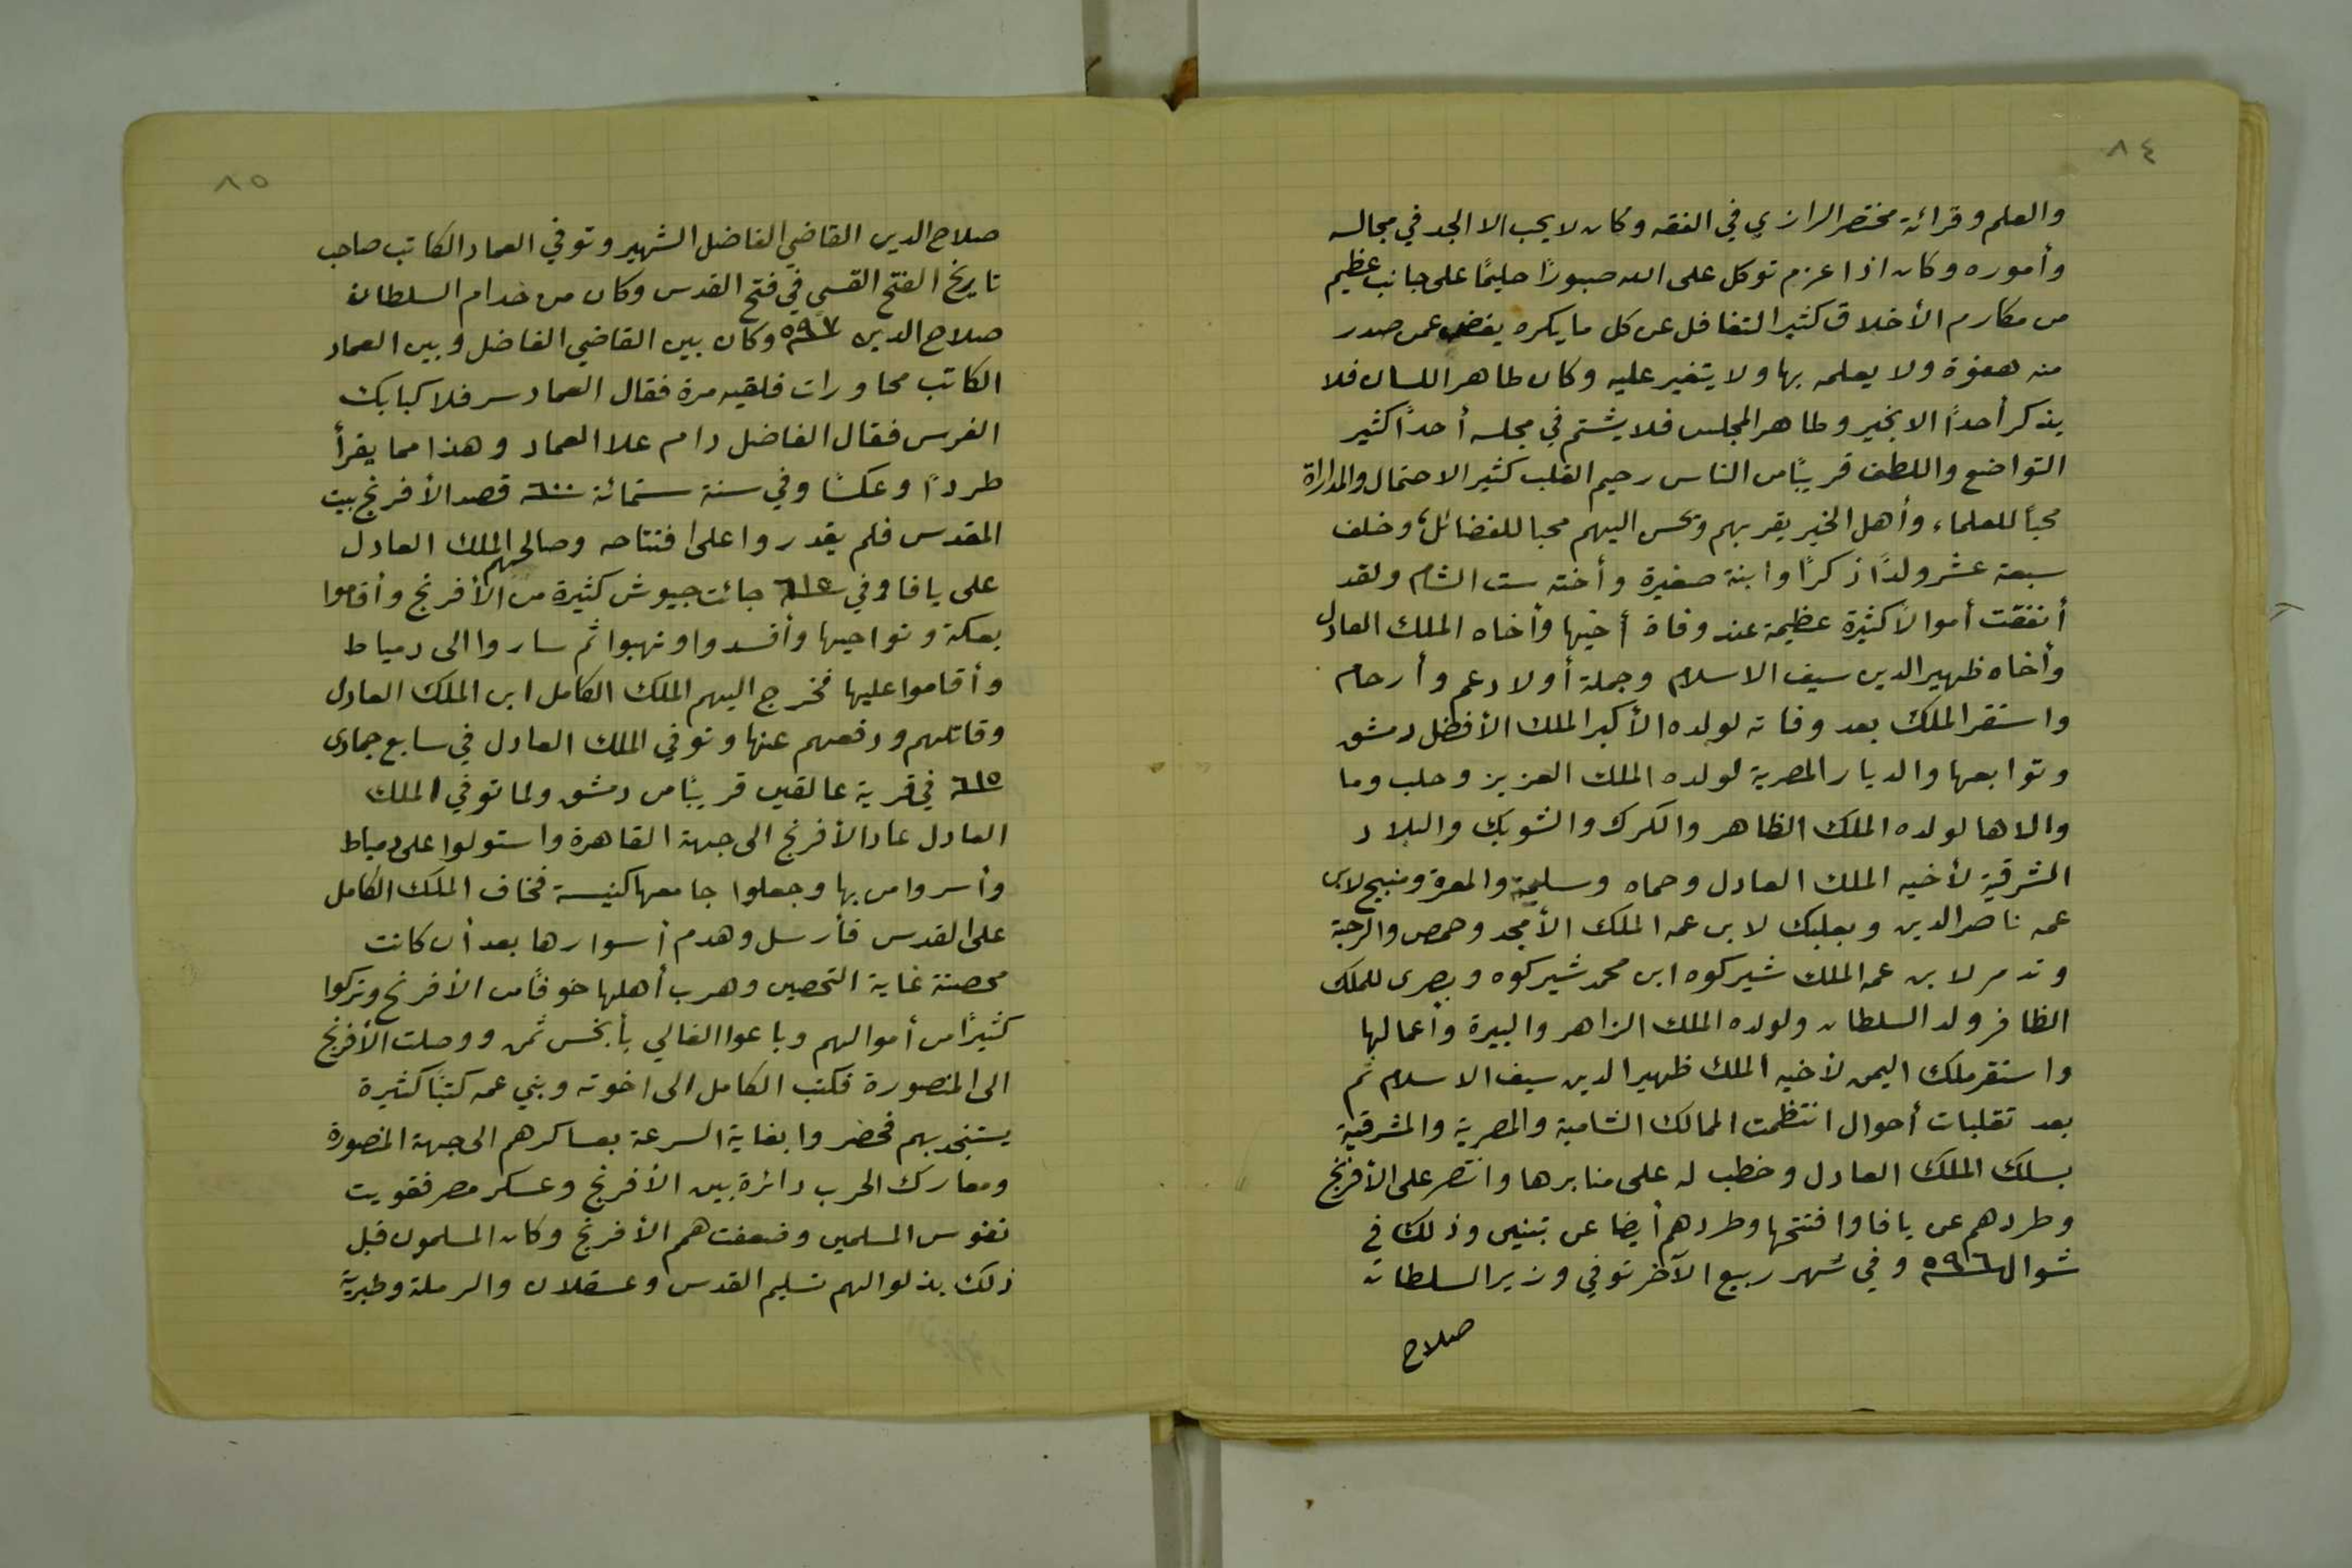 ٨٤
والعلم وقرائة مختصر الرازي في الفقه وكان لا يحب الا الجد في مجالسه
وأموره وكان اذا عزم توكل على الله صبورًا حليمًا على جانب عظيم
من مكارم الأخلاق كثير التغافل عن كل ما يكره يغض عمن صدر
منه هفوة ولا يعلمه بها ولا يتغير عليه وكان طاهر اللسان فلا
يذكر أحدًا الا بخير وطاهر المجلس فلا يشتم في مجلسه أحدًا كثير
التواضع واللطف قريبًا من الناس رحيم القلب كثير الاحتمال والمداراة
محبًا للعلماء وأهل الخير يقربهم ويحسن اليهم محبا للفضائل، وخلف
سبعة عشر ولدًا ذكرًا وابنة صغيرة وأخته ست الشام ولقد
أنفقت أموالًا كثيرة عظيمة عند وفاة أخيها وأخاه الملك العادل
وأخاه ظهير الدين سيف الاسلام وجملة أولاد عم وأرحام
واستقر الملك بعد وفاته لولده الأكبر الملك الأفضل دمشق
وتوابعها والديار المصرية لولده الملك العزيز وحلب وما
والاها لولده الملك الظاهر والكرك والشوبك والبلاد
الشرقية لأخيه الملك العادل وحماه وسلمية والمعرة ومنبج لابن
عمه ناصر الدين وبعلبك لابن عمه الملك الأمجد وحمص والرحبة
وتدمر لابن عمه الملك شيركوه ابن محمد شيركوه وبصرى للملك
الظافر ولد السلطان ولولده الملك الزاهر والبيرة وأعمالها
واستقر ملك اليمن لأخيه الملك ظهير الدين سيف الاسلام ثم
بعد تقلبات أحوال انتظمت الممالك الشامية والمصرية والمشرقية
بسلك الملك العادل وخطب له على منابرها وانتصر على الأفرنج
وطردهم عن يافا وافتتحها وطردهم أيضا عن تبنين وذلك في
شوال ٥٩٦ وفي شهر ربيع الآخر توفي وزير السلطان
صلاح
٨٥
صلاح الدين القاضي الفاضل الشهير وتوفي العماد الكاتب صاحب
تاريخ الفتح القسي في فتح القدس وكان من خدام السلطان
صلاح الدين ٥٩٧ وكان بين القاضي الفاضل وبين العماد
الكاتب محاورات فلقيه مرة فقال العماد سر فلا كبا بك
الفرس فقال الفاضل دام علا العماد وهذا مما يقرأ
طردًا وعكسًا وفي سنة ستمائة ٦٠٠ قصد الأفرنج بيت
المقدس فلم يقدروا على افتتاحه وصالحهم الملك العادل
على يافا وفي ٦١٥ جائت جيوش كثيرة من الأفرنج وأقاموا
بعكة ونواحيها وأفسدوا ونهبوا ثم ساروا الى دمياط
وأقاموا عليها فخرج اليهم الملك الكامل ابن الملك العادل
وقاتلهم ودفعهم عنها وتوفي الملك العادل في سابع جمادى
٦١٥ في قرية عالقين قريبًا من دمشق ولما توفي الملك
العادل عاد الأفرنج الى جهة القاهرة واستولوا على دمياط
وأسروا من بها وجعلوا جامعها كنيسة فخاف الملك الكامل
على القدس فأرسل وهدم أسوارها بعد أن كانت
محصنة غاية التحصين وهرب أهلها خوفًا من الأفرنج وتركوا
كثيرًا من أموالهم وباعوا الغالي بأبخس ثمن ووصلت الأفرنج
الى المنصورة فكتب الكامل الى اخوته وبني عمه كتبًا كثيرة
يستنجد بهم فحضروا بغاية السرعة بعساكرهم الى جهة المنصورة
ومعارك الحرب دائرة بين الأفرنج وعسكر مصر فقويت
نفوس المسلمين وضعفت همم الأفرنج وكان المسلمون قبل
ذلك بذلوا لهم تسليم القدس وعسقلان والرملة وطبرية